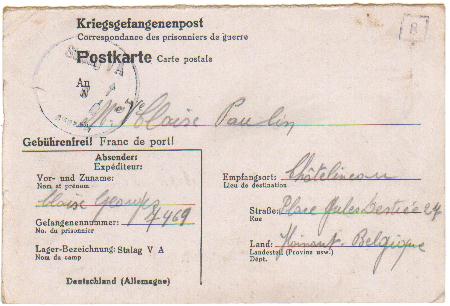 Kriegsgefangenenpost
Correspondance des prisonniers de guerre
B
Postkarte Carte postale
STALAG V A
An
Mr Vve Blaise Paulin
Gebührenfrei! Franc de port!
Absender:
Expéditeur:
Vor- und Zuname:
Nom et prénom
Blaise Georges
Gefangenennummer: 7469
No. du prisonnier
Lager-Bezeichnung: Stalag V A
Nom du camp
Deutschland (Allemagne)
Empfangsort: Châtelineau
Lieu de destination
Straße: Place Jules Destrée 27
Rue
Land: Hainaut Belgique
Landesteil (Provinz usw.)
Dépt.